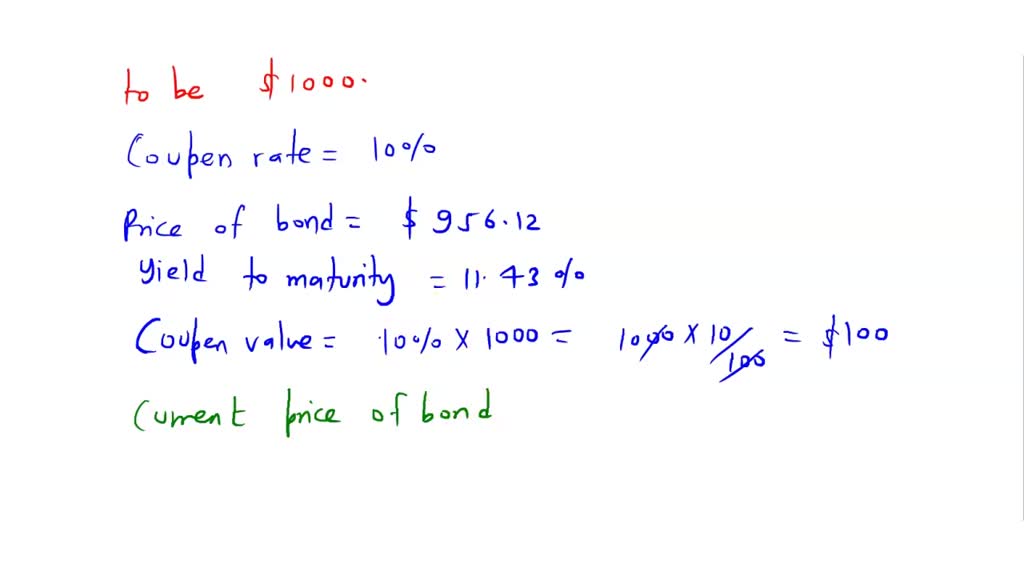 to be $1000.
Coupen rate = 10%
Price of bond = $956.12
Yield to maturity = 11.43%
Coupen value = 10% X 1000 = 1000 X 10/100 = $100
Current price of bond